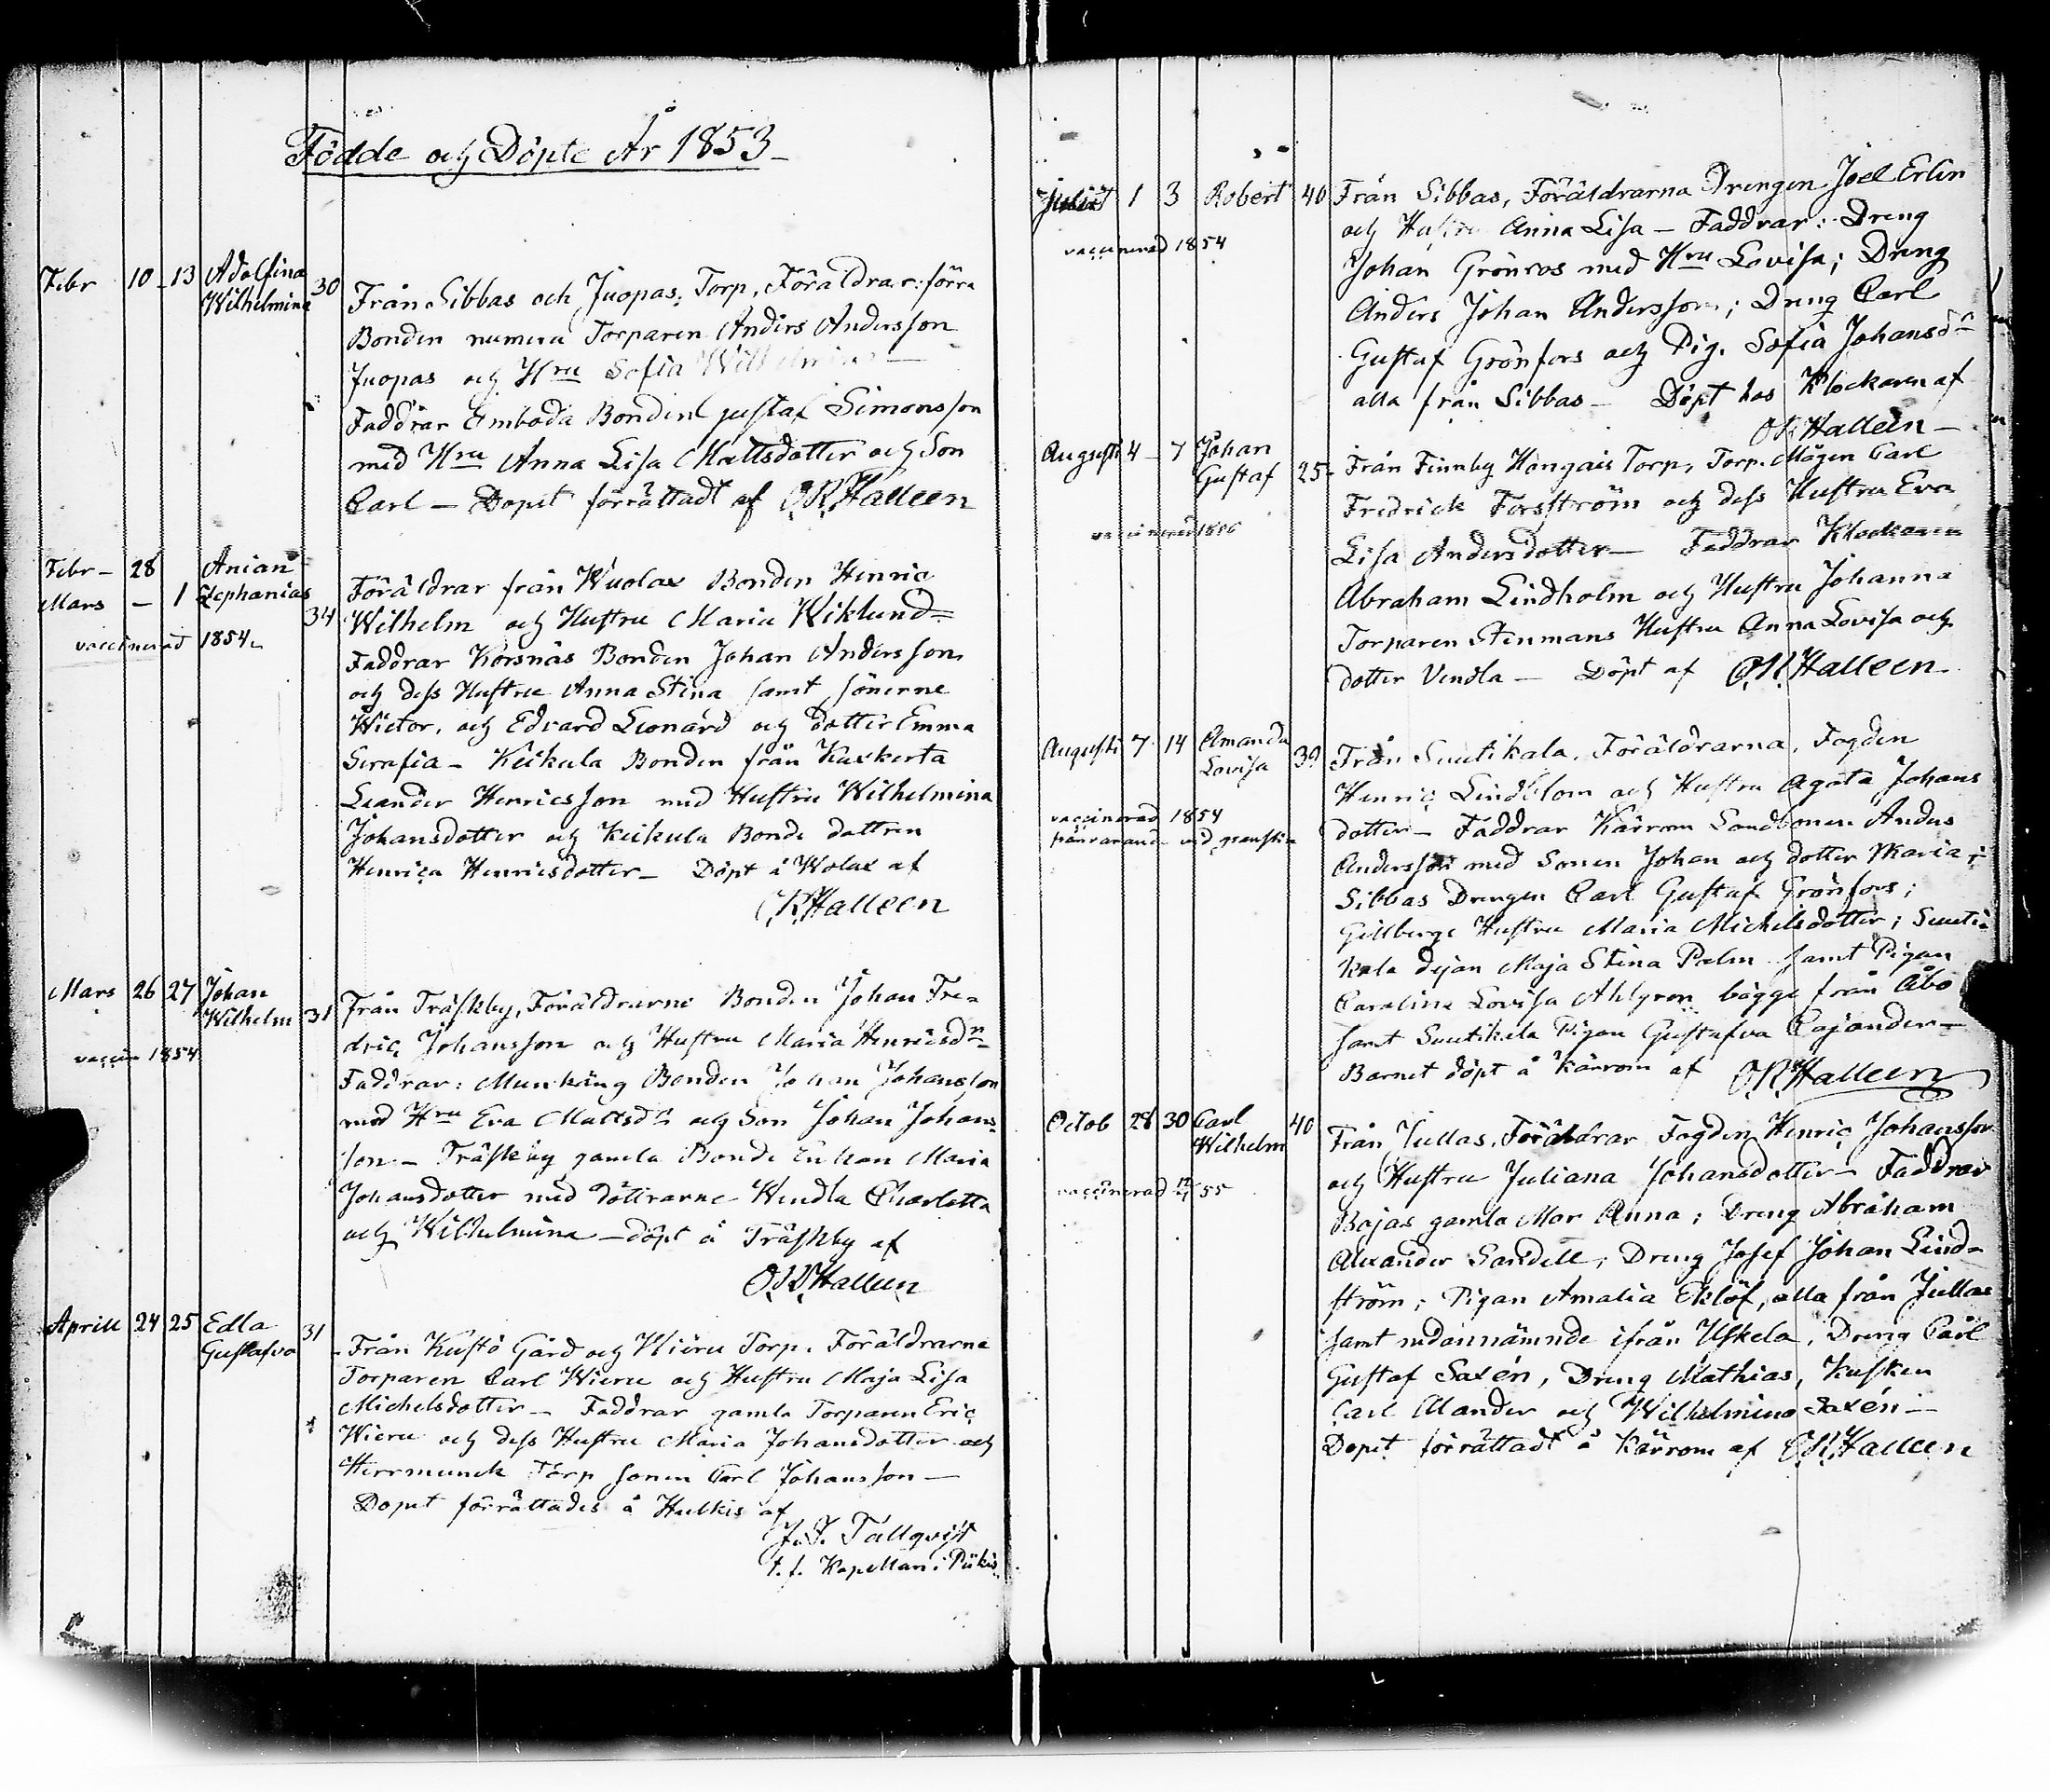 Födde och Döpte År 1853
Febr 10 - 13 Adolfina Wilhelmina 30
Från Sibbas och Juopas Torp, Föräldrar: förra
Bonden numera Torparen Anders Andersson
Juopas och Hru Sofia Wilhelmina
Faddrar Emboda Bonden Gustaf Simonsson
med Hru Anna Lisa Mattsdotter och Son
Carl — Dopet förrättadt af O.R. Halleen
Febr - 28
Mars - 1 Anian Zephanias 34
vaccinerad 1854
Föräldrar från Wuolax Bonden Henric
Wilhelm och Hustru Maria Wiklund
Faddrar Korsnäs Bonden Johan Andersson
och dess Hustru Anna Stina samt sönerne
Wictor, och Edvard Leonard och dotter Emma
Serafia - Keikula Bonden från Kaskerta
Leander Henricsson med Hustru Wilhelmina
Johansdotter och Keikula Bonde dottren
Henrica Henricsdotter — Döpt å Wolax af
O.R. Halleen
Mars 26 27 Johan Wilhelm 31
vaccin 1854
Från Träskby, Föräldrarne Bonden Johan Fre-
dric Johansson och Hustru Maria Henricsdr
Faddrar: Munkäng Bonden Johan Johansson
med Hru Eva Mattsdr och Son Johan Johans-
son - Träskby gamla Bonde Enkan Maria
Johansdotter med döttrarne Wendla Charlotta
och Wilhelmina — döpt å Träskby af
O.R. Halleen
Aprill 24 25 Edla Gustafva 31
Från Kustö Gård och Wieru Torp. Föräldrarne
Torparen Carl Wieru och Hustru Maja Lisa
Michelsdotter — Faddrar gamla Torparen Eric
Wieru och dess Hustru Maria Johansdotter och
Herrmunck Torp sonen Carl Johansson —
Dopet förrättades å Hulkis af
J.J. Tallqvist
t.f. Kapellan i Pikis
1 3 Robert 40
vaccinerad 1854
Från Sibbas, Föräldrarna Drengen Joel Erlin
och Hustru Anna Lisa — Faddrar: Dreng
Johan Grönroos med Hru Lovisa; Dreng
Anders Johan Andersson; Dreng Carl
Gustaf Grönfors och Pig. Sofia Johansdr
alla från Sibbas — Döpt hos Klockaren af
O.R. Halleen —
Augusti 4 - 7 Johan Gustaf 25
Från Finnby Hongais Torp, Torp. Mågen Carl
Fredrick Forsström och dess Hustru Eva
Lisa Andersdotter — Faddrar Klockaren
Abraham Lindholm och Hustru Johanna
Torparen Stenmans Hustru Anna Lovisa och
dotter Vendla — Döpt af O.R. Halleen
Augusti 7 14 Amanda Lovisa 39
vaccinerad 1854
Från Suutikala, Föräldrarna, Fogden
Henric Lindblom och Hustru Agata Johans
dotter — Faddrar Kärrom Landbonen Anders
Andersson med Sonen Johan och dotter Maria;
Sibbas Drengen Carl Gustaf Grönfors;
Gillbergs Hustru Maria Michelsdotter; Suuti-
kala dejan Maja Stina Palm samt Pigan
Carolina Lovisa Ahlgren bägge från Åbo
samt Suutikala Pigan Gustafva Cajander —
Barnet döpt å Kärrom af O.R. Halleen
Octob 28 30 Carl Wilhelm 40
vaccinerad 55
Från Jullas, Föräldrar Fogden Henric Johansson
och Hustru Juliana Johansdotter — Faddrar
Bajas gamla Mor Anna; Dreng Abraham
Alexander Sandell; Dreng Josef Johan Lind-
ström; Pigan Amalia Eklöf, alla från Jullas
samt nedannämnde ifrån Uskela, Dreng Carl
Gustaf Saxén, Dreng Mathias, Kusken
Carl Alander och Wilhelmina Saxén —
Dopet förrättadt å Kärrom af O.R. Halleen